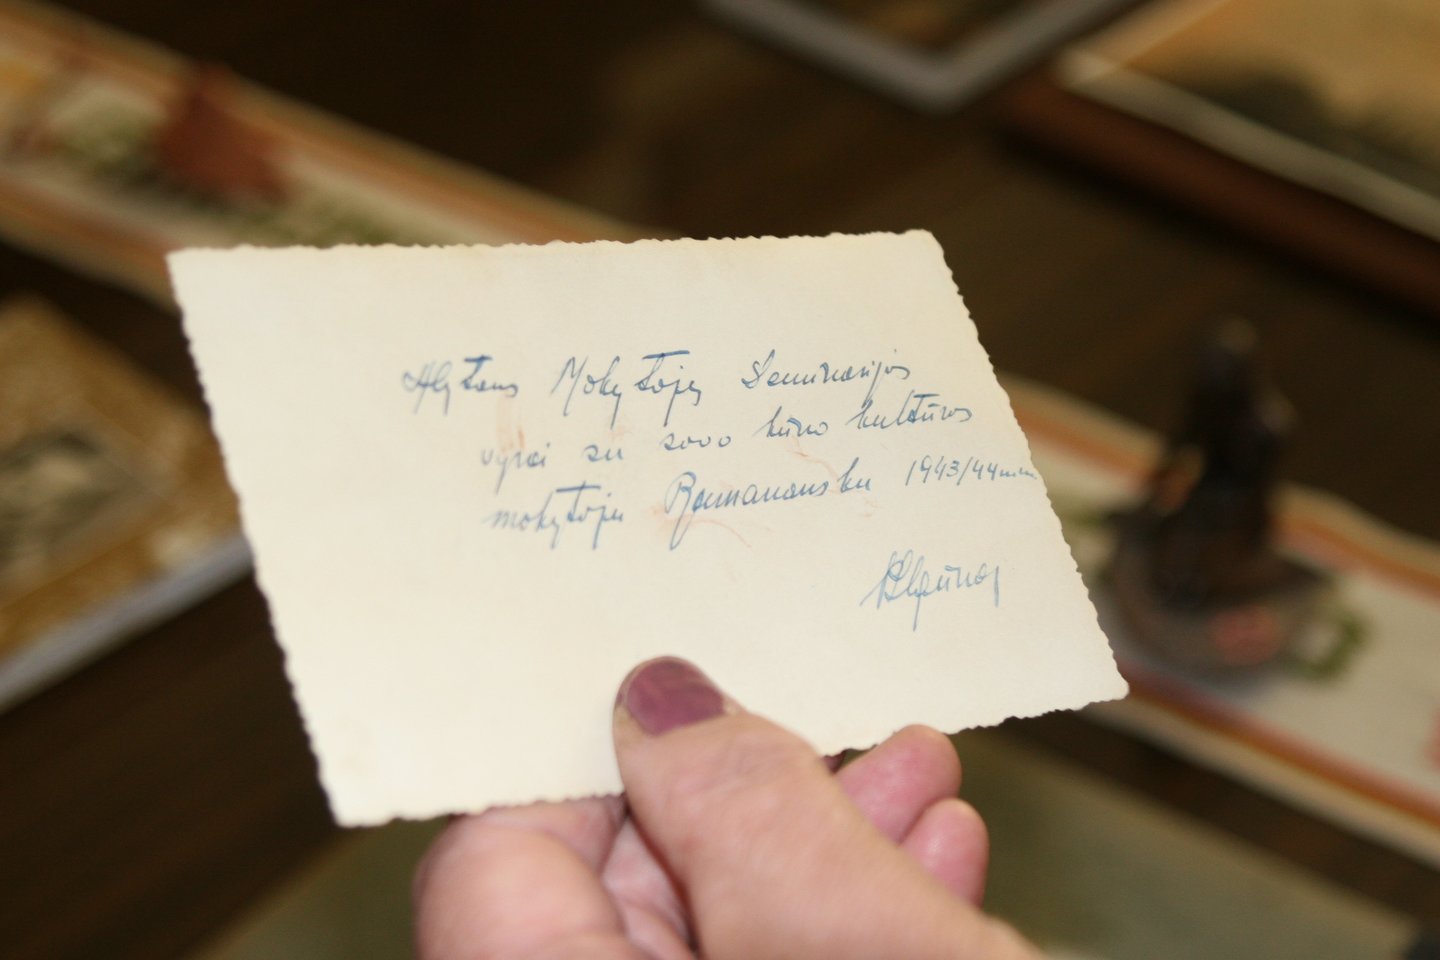 Alytaus Mokytojų Seminarijos
vyrai su savo kūno kultūros
mokytoju Ramanausku 1943/44 m.m.